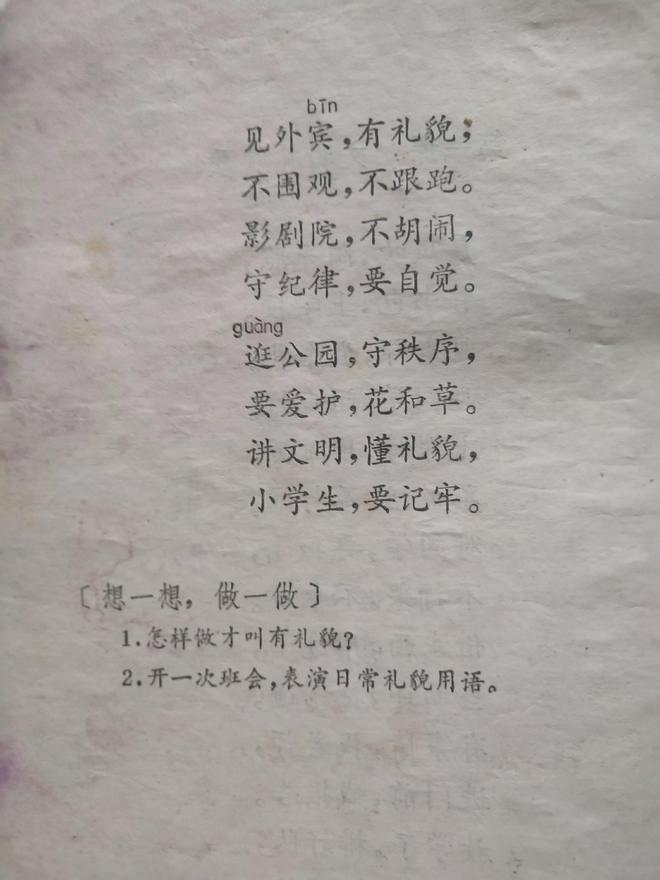 bīn
见外宾，有礼貌；
不围观，不跟跑。
影剧院，不胡闹，
守纪律，要自觉。
guàng
逛公园，守秩序，
要爱护，花和草。
讲文明，懂礼貌，
小学生，要记牢。
〔想一想，做一做〕
1.怎样做才叫有礼貌？
2.开一次班会，表演日常礼貌用语。